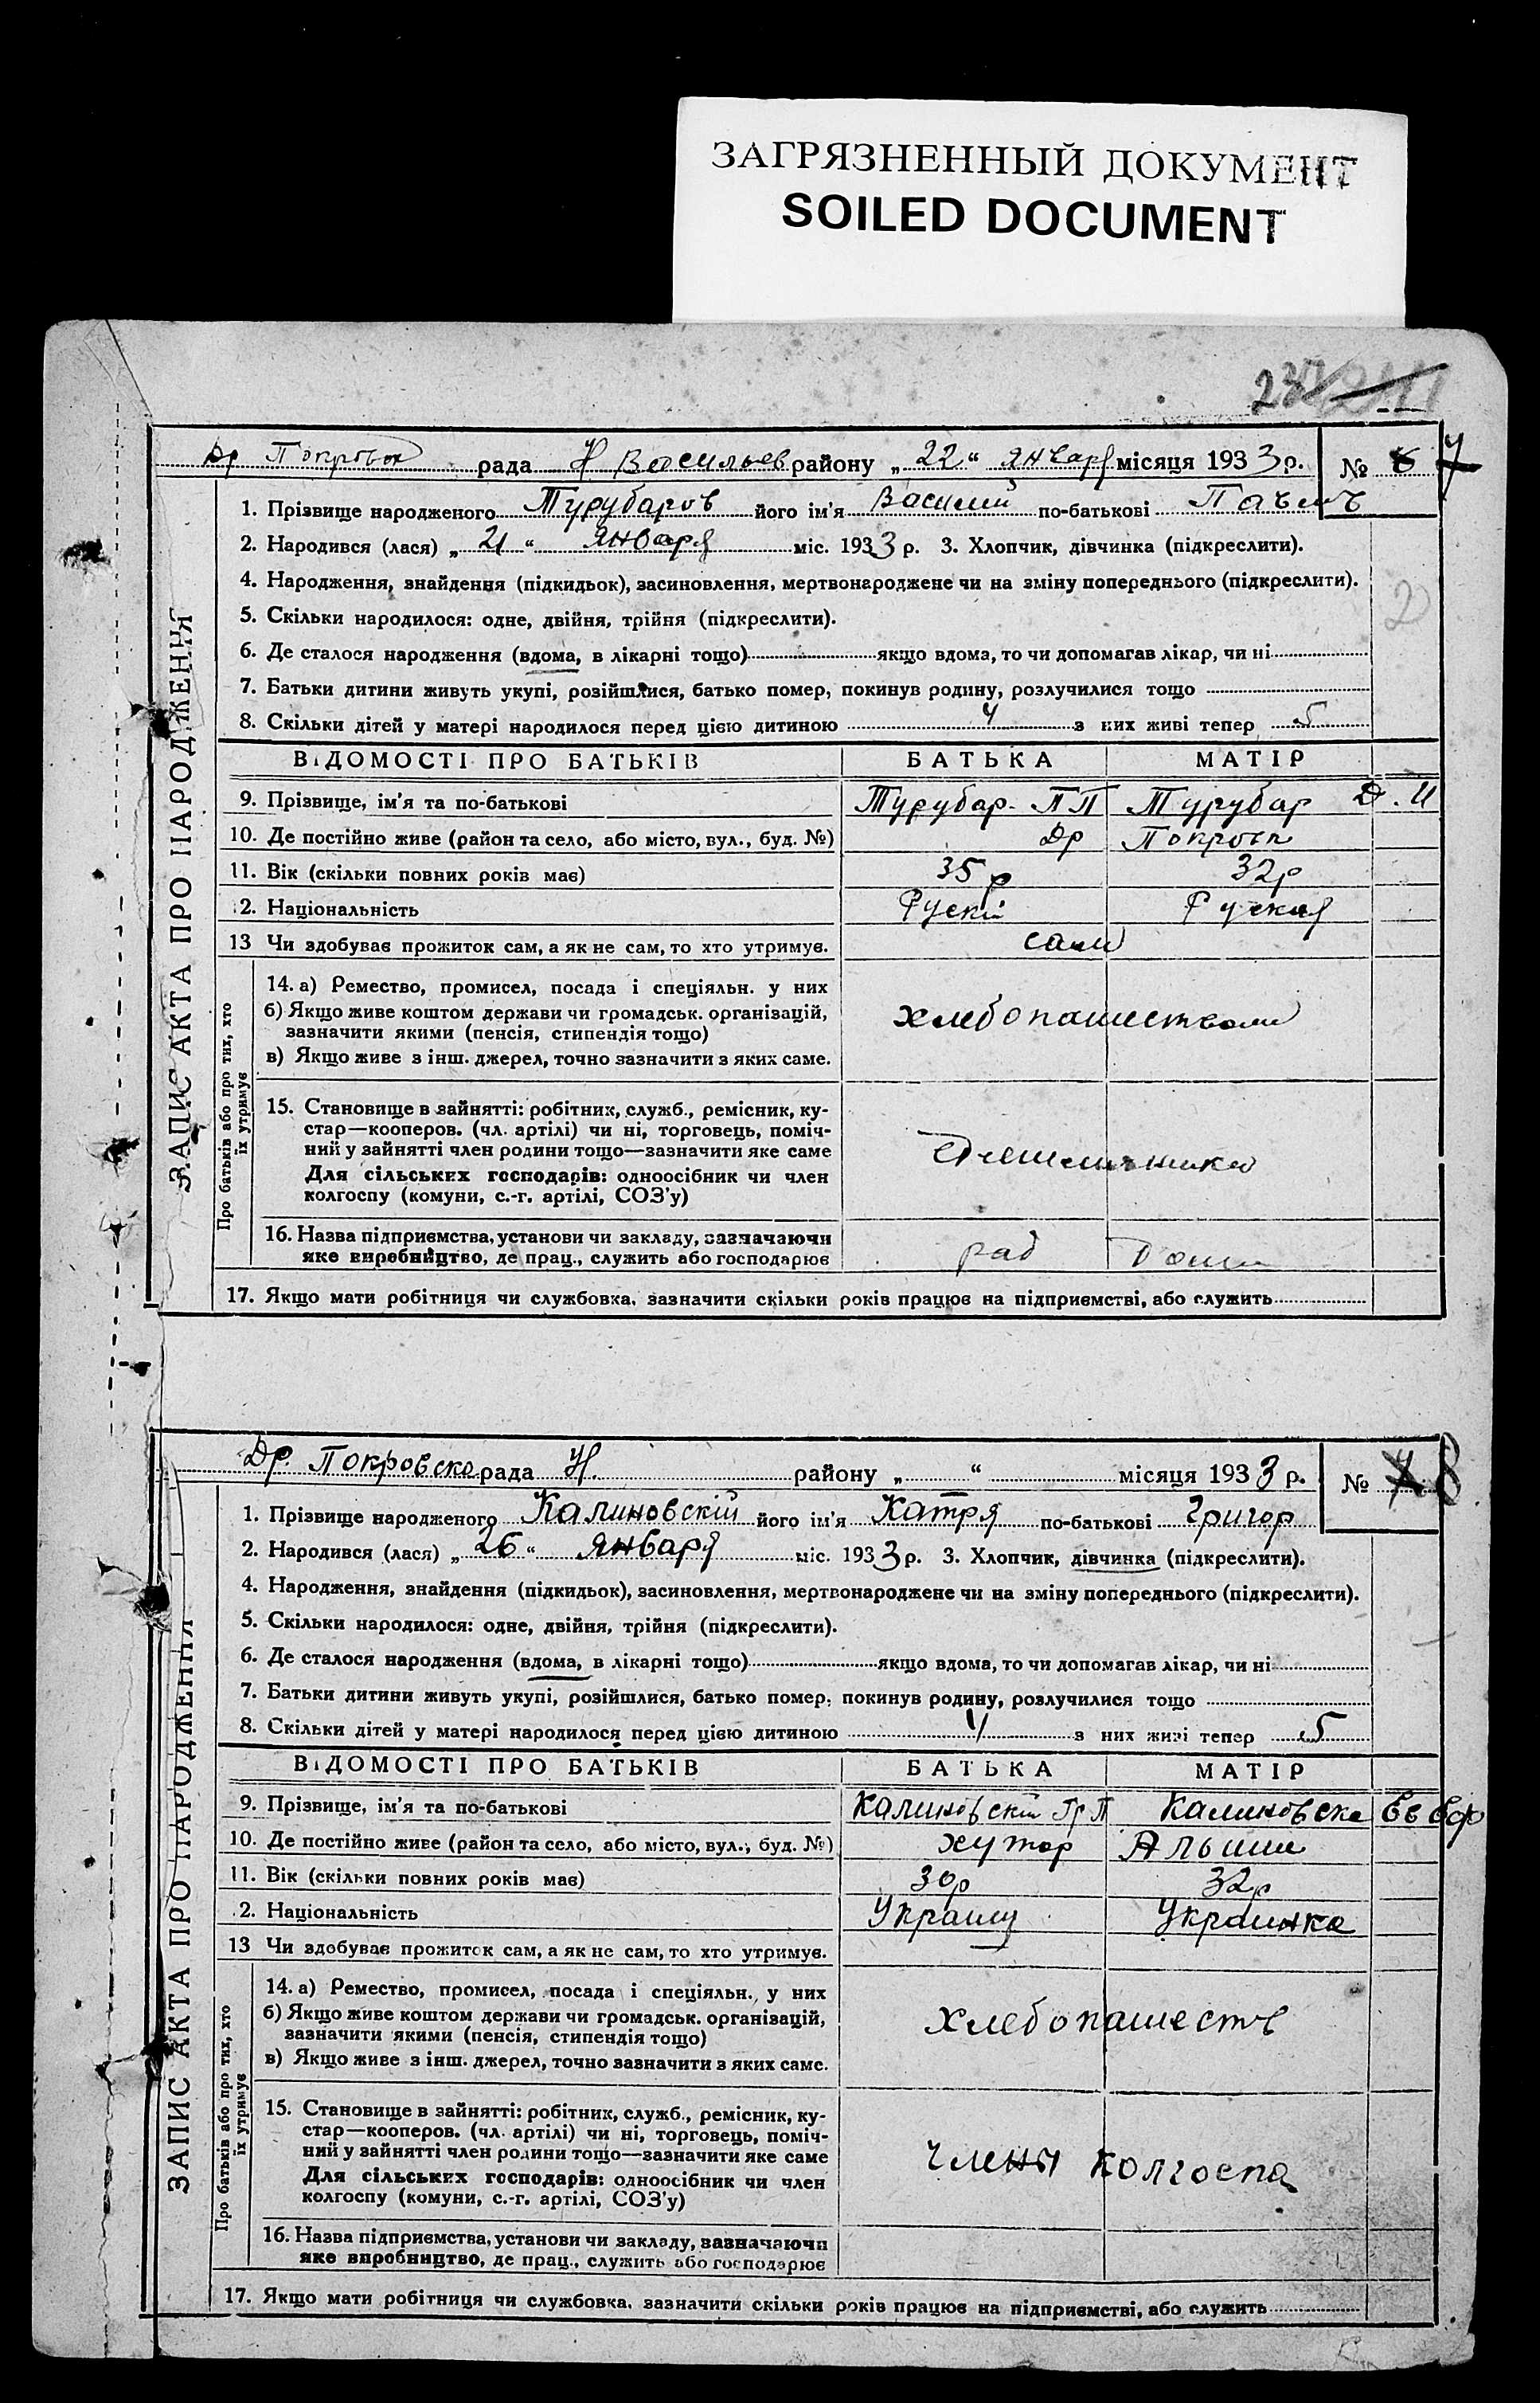 ЗАГРЯЗНЕННЫЙ ДОКУМЕНТ
SOILED DOCUMENT
237
Др Покровск рада Н Васильев району „ 22 “ января місяця 1933 р. № 7
1. Прізвище народженого Турубаров його ім'я Василий по-батькові
2. Народився (лася) „ 21 “ января міс. 1933 р. 3. Хлопчик, дівчинка (підкреслити).
4. Народження, знайдення (підкидьок), засиновлення, мертвонароджене чи на зміну попереднього (підкреслити).
5. Скільки народилося: одне, двійня, трійня (підкреслити).
6. Де сталося народження (вдома, в лікарні тощо) якщо вдома, то чи допомагав лікар, чи ні
7. Батьки дитини живуть укупі, розійшлися, батько помер, покинув родину, розлучилися тощо
8. Скільки дітей у матері народилося перед цією дитиною 4 з них живі тепер 5
2
ЗАПИС АКТА ПРО НАРОДЖЕННЯ
ВІДОМОСТІ ПРО БАТЬКІВ БАТЬКА МАТІР
9. Прізвище, ім'я та по-батькові Турубар. ПП Турубар Д. И
10. Де постійно живе (район та село, або місто, вул., буд. №) Др Покровк
11. Вік (скільки повних років має) 35 р 32 р
12. Національність Рускій Руская
13 Чи здобуває прожиток сам, а як не сам, то хто утримує. сами
Про батьків або про тих, хто їх утримує
14. а) Ремество, промисел, посада і спеціяльн. у них
б) Якщо живе коштом держави чи громадськ. організацій,
зазначити якими (пенсія, стипендія тощо) хлебопашеством
в) Якщо живе з інш. джерел, точно зазначити з яких саме.
15. Становище в зайнятті: робітник, служб., ремісник, ку-
стар—кооперов. (чл. артілі) чи ні, торговець, поміч-
ний у зайнятті член родини тощо—зазначити яке саме
Для сільських господарів: одноосібник чи член
колгоспу (комуни, с.-г. артілі, СОЗ'у)
16. Назва підприємства, установи чи закладу, зазначаючи
яке виробництво, де прац., служить або господарює
17. Якщо мати робітниця чи службовка, зазначити скільки років працює на підприємстві, або служить
Др. Покровске рада Н. району „ “ місяця 1933 р. № 8
1. Прізвище народженого Калиновскій його ім'я Катря по-батькові Григор
2. Народився (лася) „ 26 “ января міс. 1933 р. 3. Хлопчик, дівчинка (підкреслити).
4. Народження, знайдення (підкидьок), засиновлення, мертвонароджене чи на зміну попереднього (підкреслити).
5. Скільки народилося: одне, двійня, трійня (підкреслити).
6. Де сталося народження (вдома, в лікарні тощо) якщо вдома, то чи допомагав лікар, чи ні
7. Батьки дитини живуть укупі, розійшлися, батько помер, покинув родину, розлучилися тощо
8. Скільки дітей у матері народилося перед цією дитиною 4 з них живі тепер 5
ЗАПИС АКТА ПРО НАРОДЖЕННЯ
ВІДОМОСТІ ПРО БАТЬКІВ БАТЬКА МАТІР
9. Прізвище, ім'я та по-батькові Калиновскій Гр П Калиновска
10. Де постійно живе (район та село, або місто, вул., буд. №) хутор
11. Вік (скільки повних років має) 30р 32р
12. Національність Украинц Украинка
13 Чи здобуває прожиток сам, а як не сам, то хто утримує.
Про батьків або про тих, хто їх утримує
14. а) Ремество, промисел, посада і спеціяльн. у них
б) Якщо живе коштом держави чи громадськ. організацій,
зазначити якими (пенсія, стипендія тощо) хлебопашеств
в) Якщо живе з інш. джерел, точно зазначити з яких саме.
15. Становище в зайнятті: робітник, служб., ремісник, ку-
стар—кооперов. (чл. артілі) чи ні, торговець, поміч-
ний у зайнятті член родини тощо—зазначити яке саме члены колгоспа
Для сільських господарів: одноосібник чи член
колгоспу (комуни, с.-г. артілі, СОЗ'у)
16. Назва підприємства, установи чи закладу, зазначаючи
яке виробництво, де прац., служить або господарює
17. Якщо мати робітниця чи службовка, зазначити скільки років працює на підприємстві, або служить